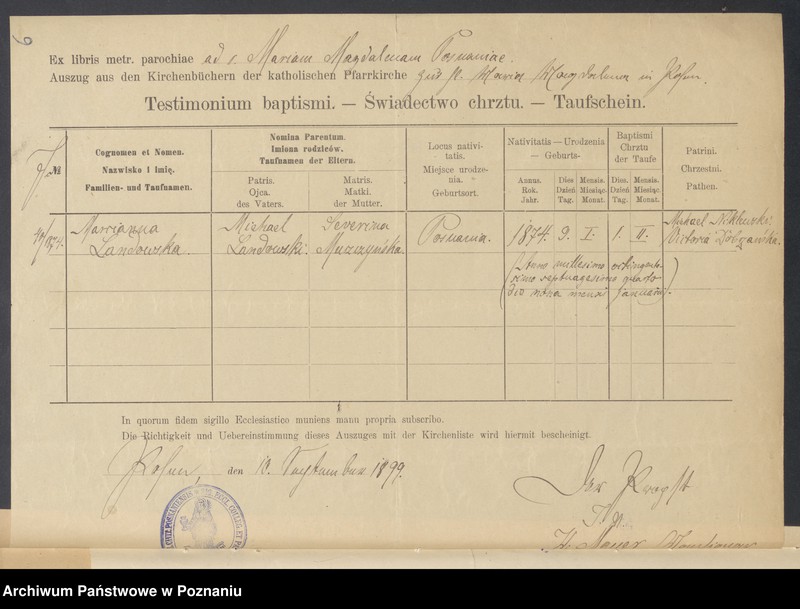 6
Ex libris metr. parochiae ad s. Mariam Magdalenam Posnaniae.
Auszug aus den Kirchenbüchern der katholischen Pfarrkirche zur h. Maria Magdalena in Posen.
Testimonium baptismi. — Świadectwo chrztu. — Taufschein.
№
Cognomen et Nomen.
Nazwisko i imię.
Familien- und Taufnamen.
Nomina Parentum.
Imiona rodziców.
Taufnamen der Eltern.
Patris.
Ojca.
des Vaters.
Matris.
Matki.
der Mutter.
Locus nativi-
tatis.
Miejsce urodze-
nia.
Geburtsort.
Nativitatis — Urodzenia
— Geburts-
Annus.
Rok.
Jahr.
Dies
Dzień
Tag.
Mensis.
Miesiąc.
Monat.
Baptismi
Chrztu
der Taufe
Dies.
Dzień
Tag.
Mensis.
Miesiąc.
Monat.
Patrini.
Chrzestni.
Pathen.
/1874.
Marcianna
Landowska.
Michael
Landowski.
Severina
Muszyńska.
Posnania.
1874.
9.
I.
1.
II.
Michael
Victoria
(Anno millesimo octingente-
simo septuagesimo quarto
die nona mensis Januarii).
In quorum fidem sigillo Ecclesiastico muniens manu propria subscribo.
Die Richtigkeit und Uebereinstimmung dieses Auszuges mit der Kirchenliste wird hiermit bescheinigt.
Posen, den 10. September 1899.
Der Propst
Archiwum Państwowe w Poznaniu